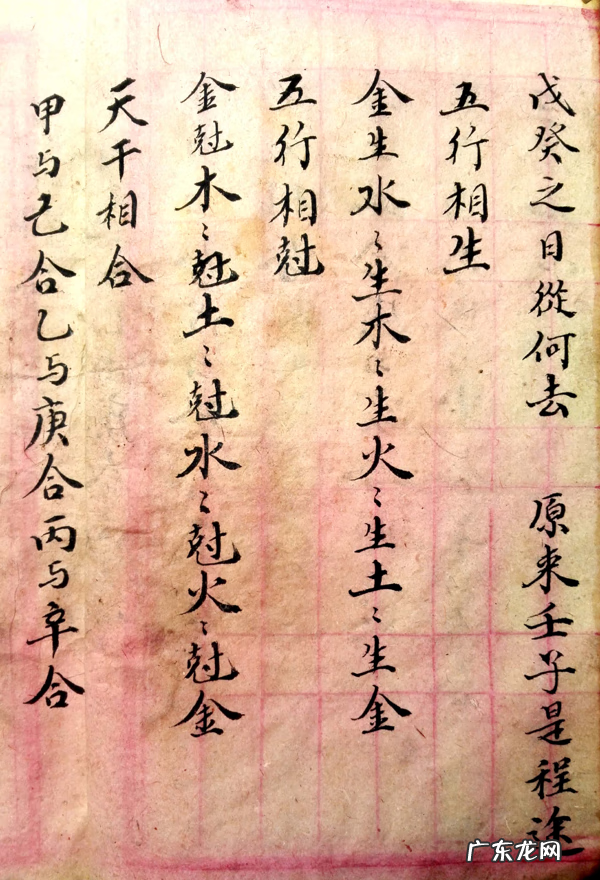 戊癸之日從何去　原来壬子是程途
五行相生
金生水〻生木〻生火〻生土〻生金
五行相尅
金尅木〻尅土〻尅水〻尅火〻尅金
天干相合
甲与己合乙与庚合丙与辛合
广东龙网